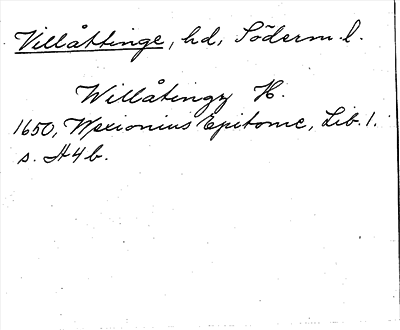 Villåttinge, hd, Söderm. l.
Willåtingz H.
1650, Wexionius Epitome, Lib. 1.
s. H4b.